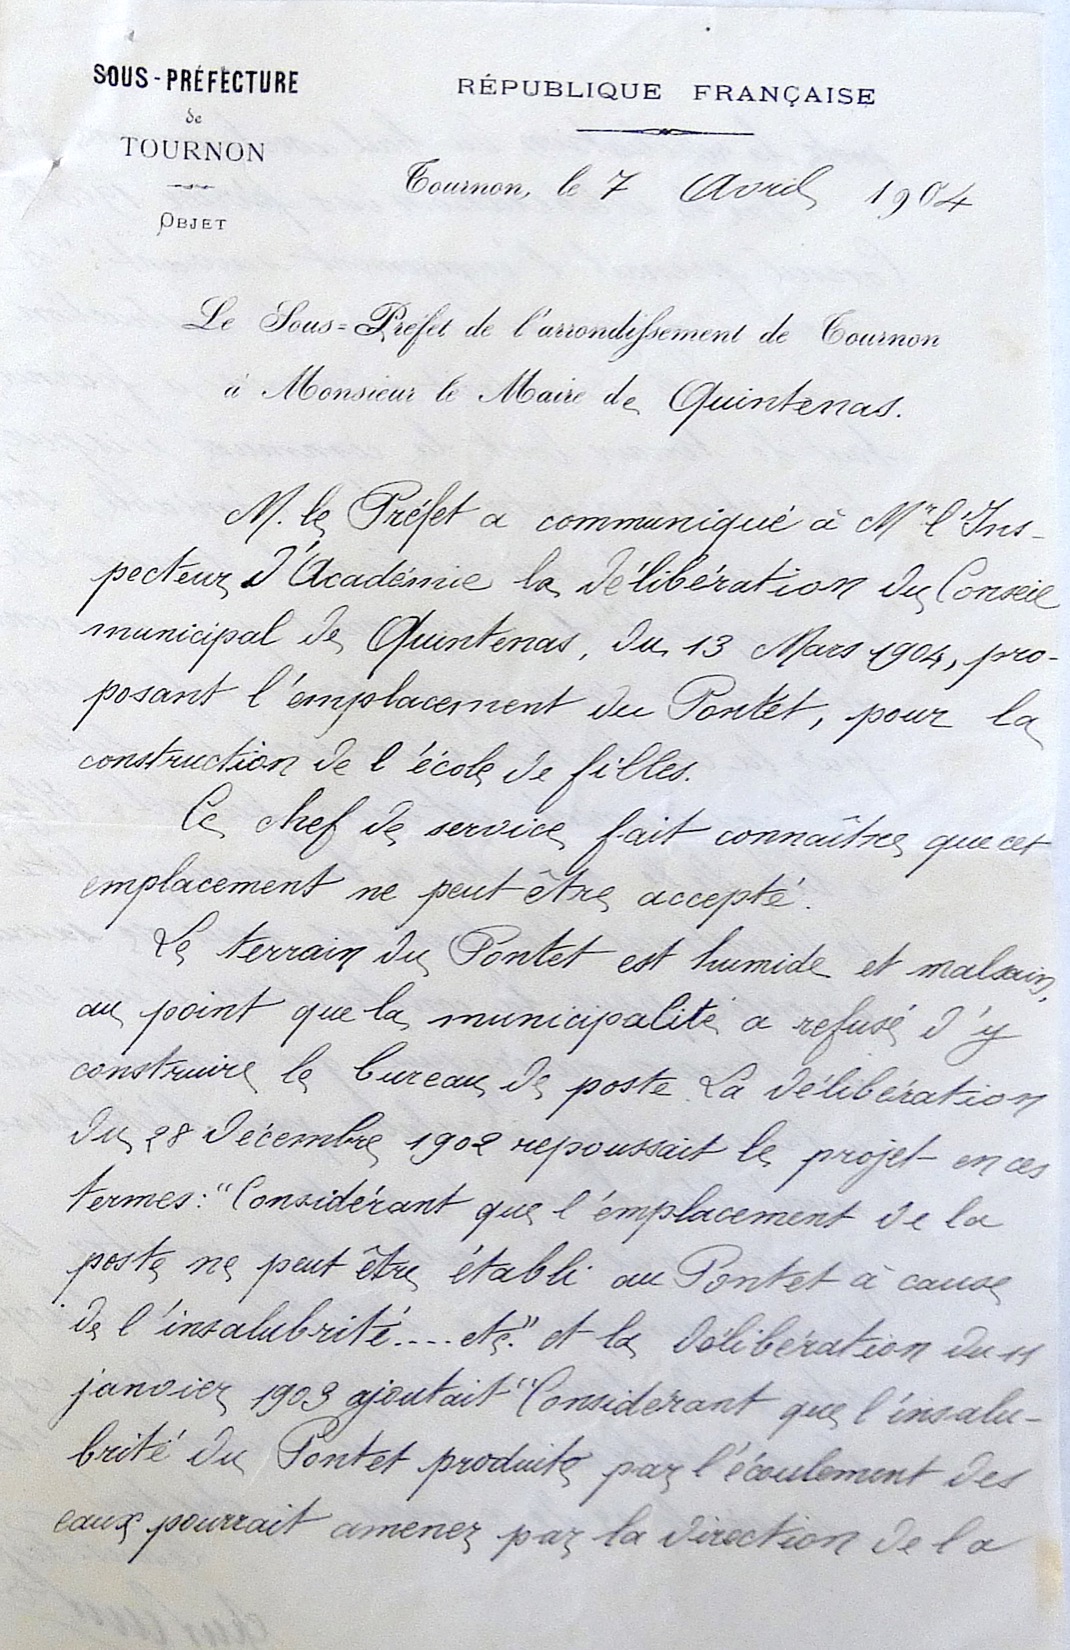 SOUS-PRÉFECTURE
de
TOURNON
OBJET
RÉPUBLIQUE FRANÇAISE
Tournon, le 7 Avril 1904
Le Sous-Préfet de l'arrondissement de Tournon
à Monsieur le Maire de Quintenas.
M. le Préfet a communiqué à Mr l'Ins-
pecteur d'Académie la délibération du Conseil
municipal de Quintenas, du 13 Mars 1904, pro-
posant l'emplacement du Pontet, pour la
construction de l'école de filles.
Ce chef de service fait connaître que cet
emplacement ne peut être accepté.
Le terrain du Pontet est humide et malsain,
au point que la municipalité a refusé d'y
construire le bureau de poste. La délibération
du 28 décembre 1902 repoussait le projet en ces
termes: "Considérant que l'emplacement de la
poste ne peut être établi au Pontet à cause
de l'insalubrité.... etc." et la délibération du 11
janvier 1903 ajoutait "Considérant que l'insalu-
brité du Pontet produite par l'écoulement des
eaux pourrait amener par la direction de la